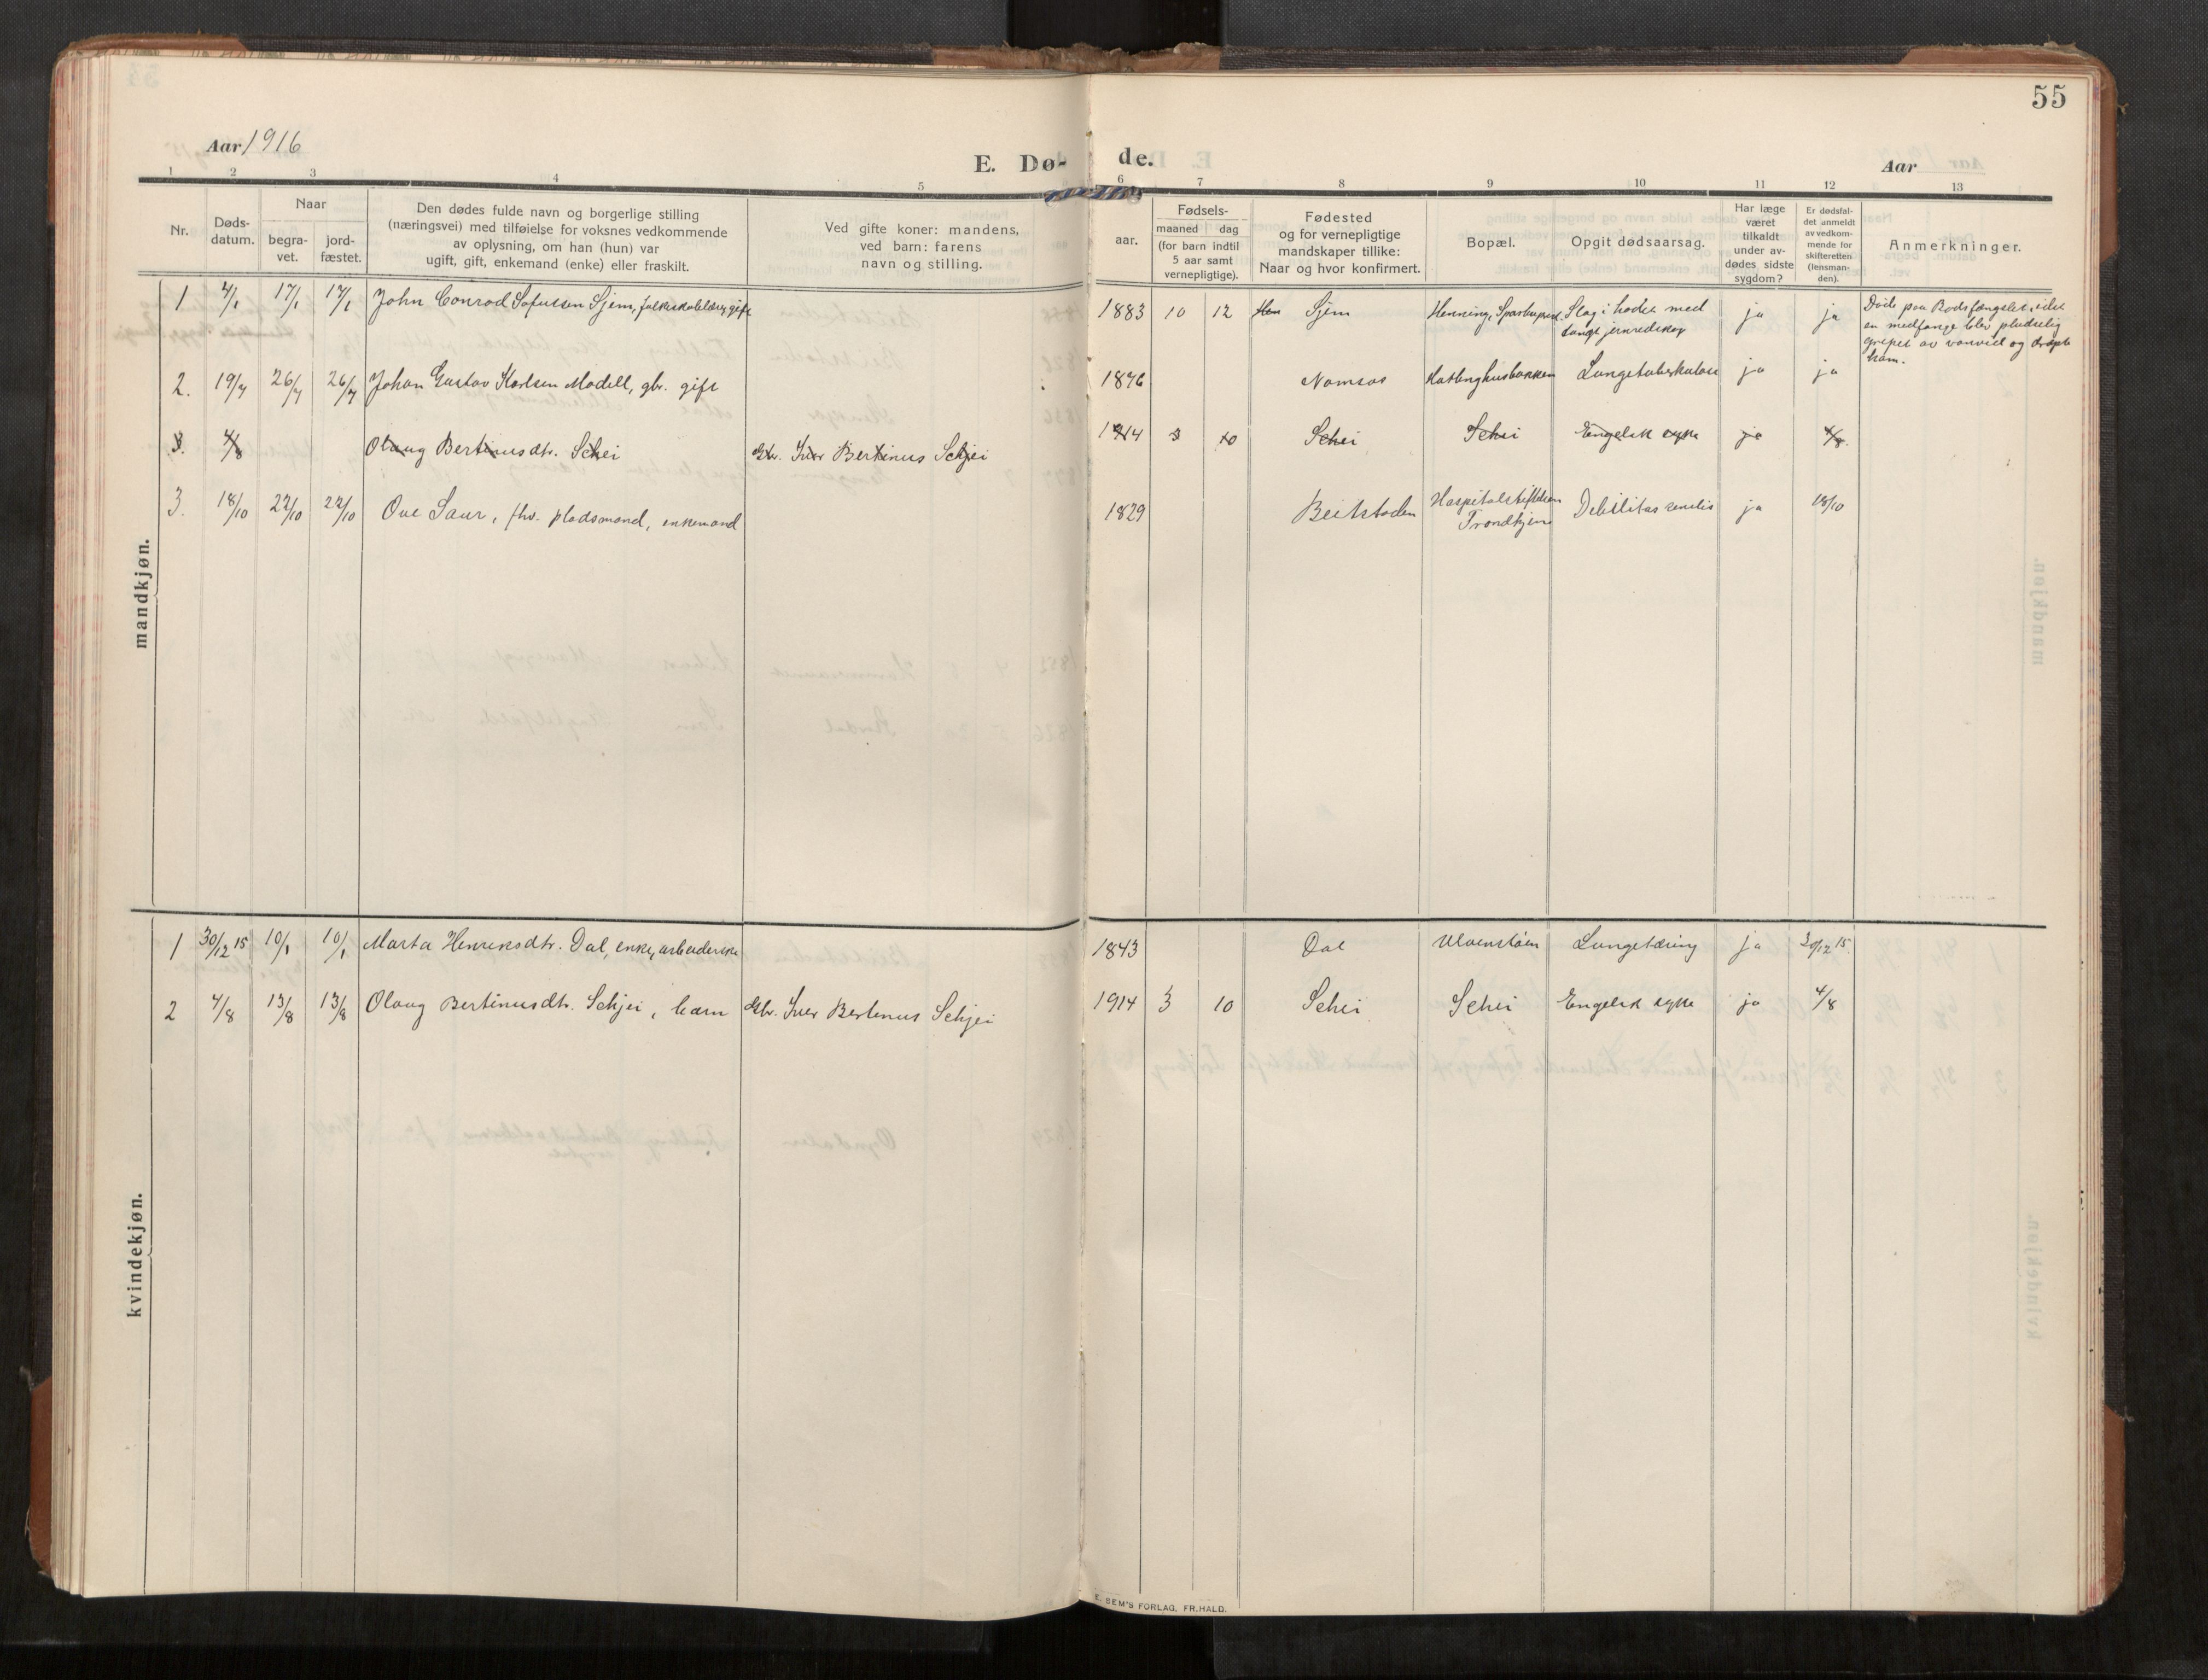 55
Aar 1916
E. Dø-
de.
Aar
1 2 3 4 5 6 7 8 9 10 11 12 13
Nr.
Døds-
datum.
Naar
begra-
vet.
jord-
fæstet.
Den dødes fulde navn og borgerlige stilling
(næringsvei) med tilføielse for voksnes vedkommende
av oplysning, om han (hun) var
ugift, gift, enkemand (enke) eller fraskilt.
Ved gifte koner: mandens,
ved barn: farens
navn og stilling.
aar.
Fødsels-
maaned dag
(for barn indtil
5 aar samt
vernepligtige).
Fødested
og for vernepligtige
mandskaper tillike:
Naar og hvor konfirmert.
Bopæl.
Opgit dødsaarsag.
Har læge
været
tilkaldt
under av-
dødes sidste
sygdom?
Er dødsfal-
det anmeldt
av vedkom-
mende for
skifteretten
(lensman-
den).
Anmerkninger.
mandkjøn.
1 4/1 17/1 17/1 John Conrod Sofussen Sjem, folkeskolelærer, gift 1883 10 12 Hen Sjem Henning, Sparbuprest. Slag i hodet med ja ja Døde paa Bodsfængslet, idet
tungt jernredskap en medfange blev pludselig
grepet av vanvid og dræpte
ham.
2. 19/4 26/4 26/4 Johan Gustav Karlsen Modell, gbr. gift 1876 Namsos Kvatlinghusbakken Lungetuberkulose ja ja
3. 4/8 Olaug Bertinusdtr. Schei Gbr. Iver Bertinus Schjei 1914 3 10 Schei Schei Engelsk syke ja 4/8.
3. 18/10 22/10 22/10 Ove Saur, fhv. pladsmand, enkemand 1829 Beitstaden Hospitalstiftelsen Debilitas senilis ja 18/10
Trondhjem
kvindekjøn.
1 30/12 15 10/1 10/1 Marta Henriksdtr. Dal, enke, arbeiderske 1843 Dal Ulvenstøen Lungetæring ja 30/12 15.
2 4/8 13/8 13/8 Olaug Bertinusdtr. Schjei, barn Gbr. Iver Bertinus Schjei 1914 3 10 Schei Schei Engelsk syke ja 4/8
E. SEM'S FORLAG, FR.HALD.